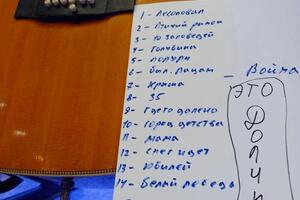 1 - Лесоповал
2 - Птичий рынок
3 - 10 заповедей
4 - Голубина
5 - Лопухи
6 - Был. пацан - Война
7 - Крыша
8 - 35
9 - Где-то далеко
10 - Город детства
11 - Мама
12 - Снег идет
13 - Юбилей
14 - Белый лебедь
ЭТО